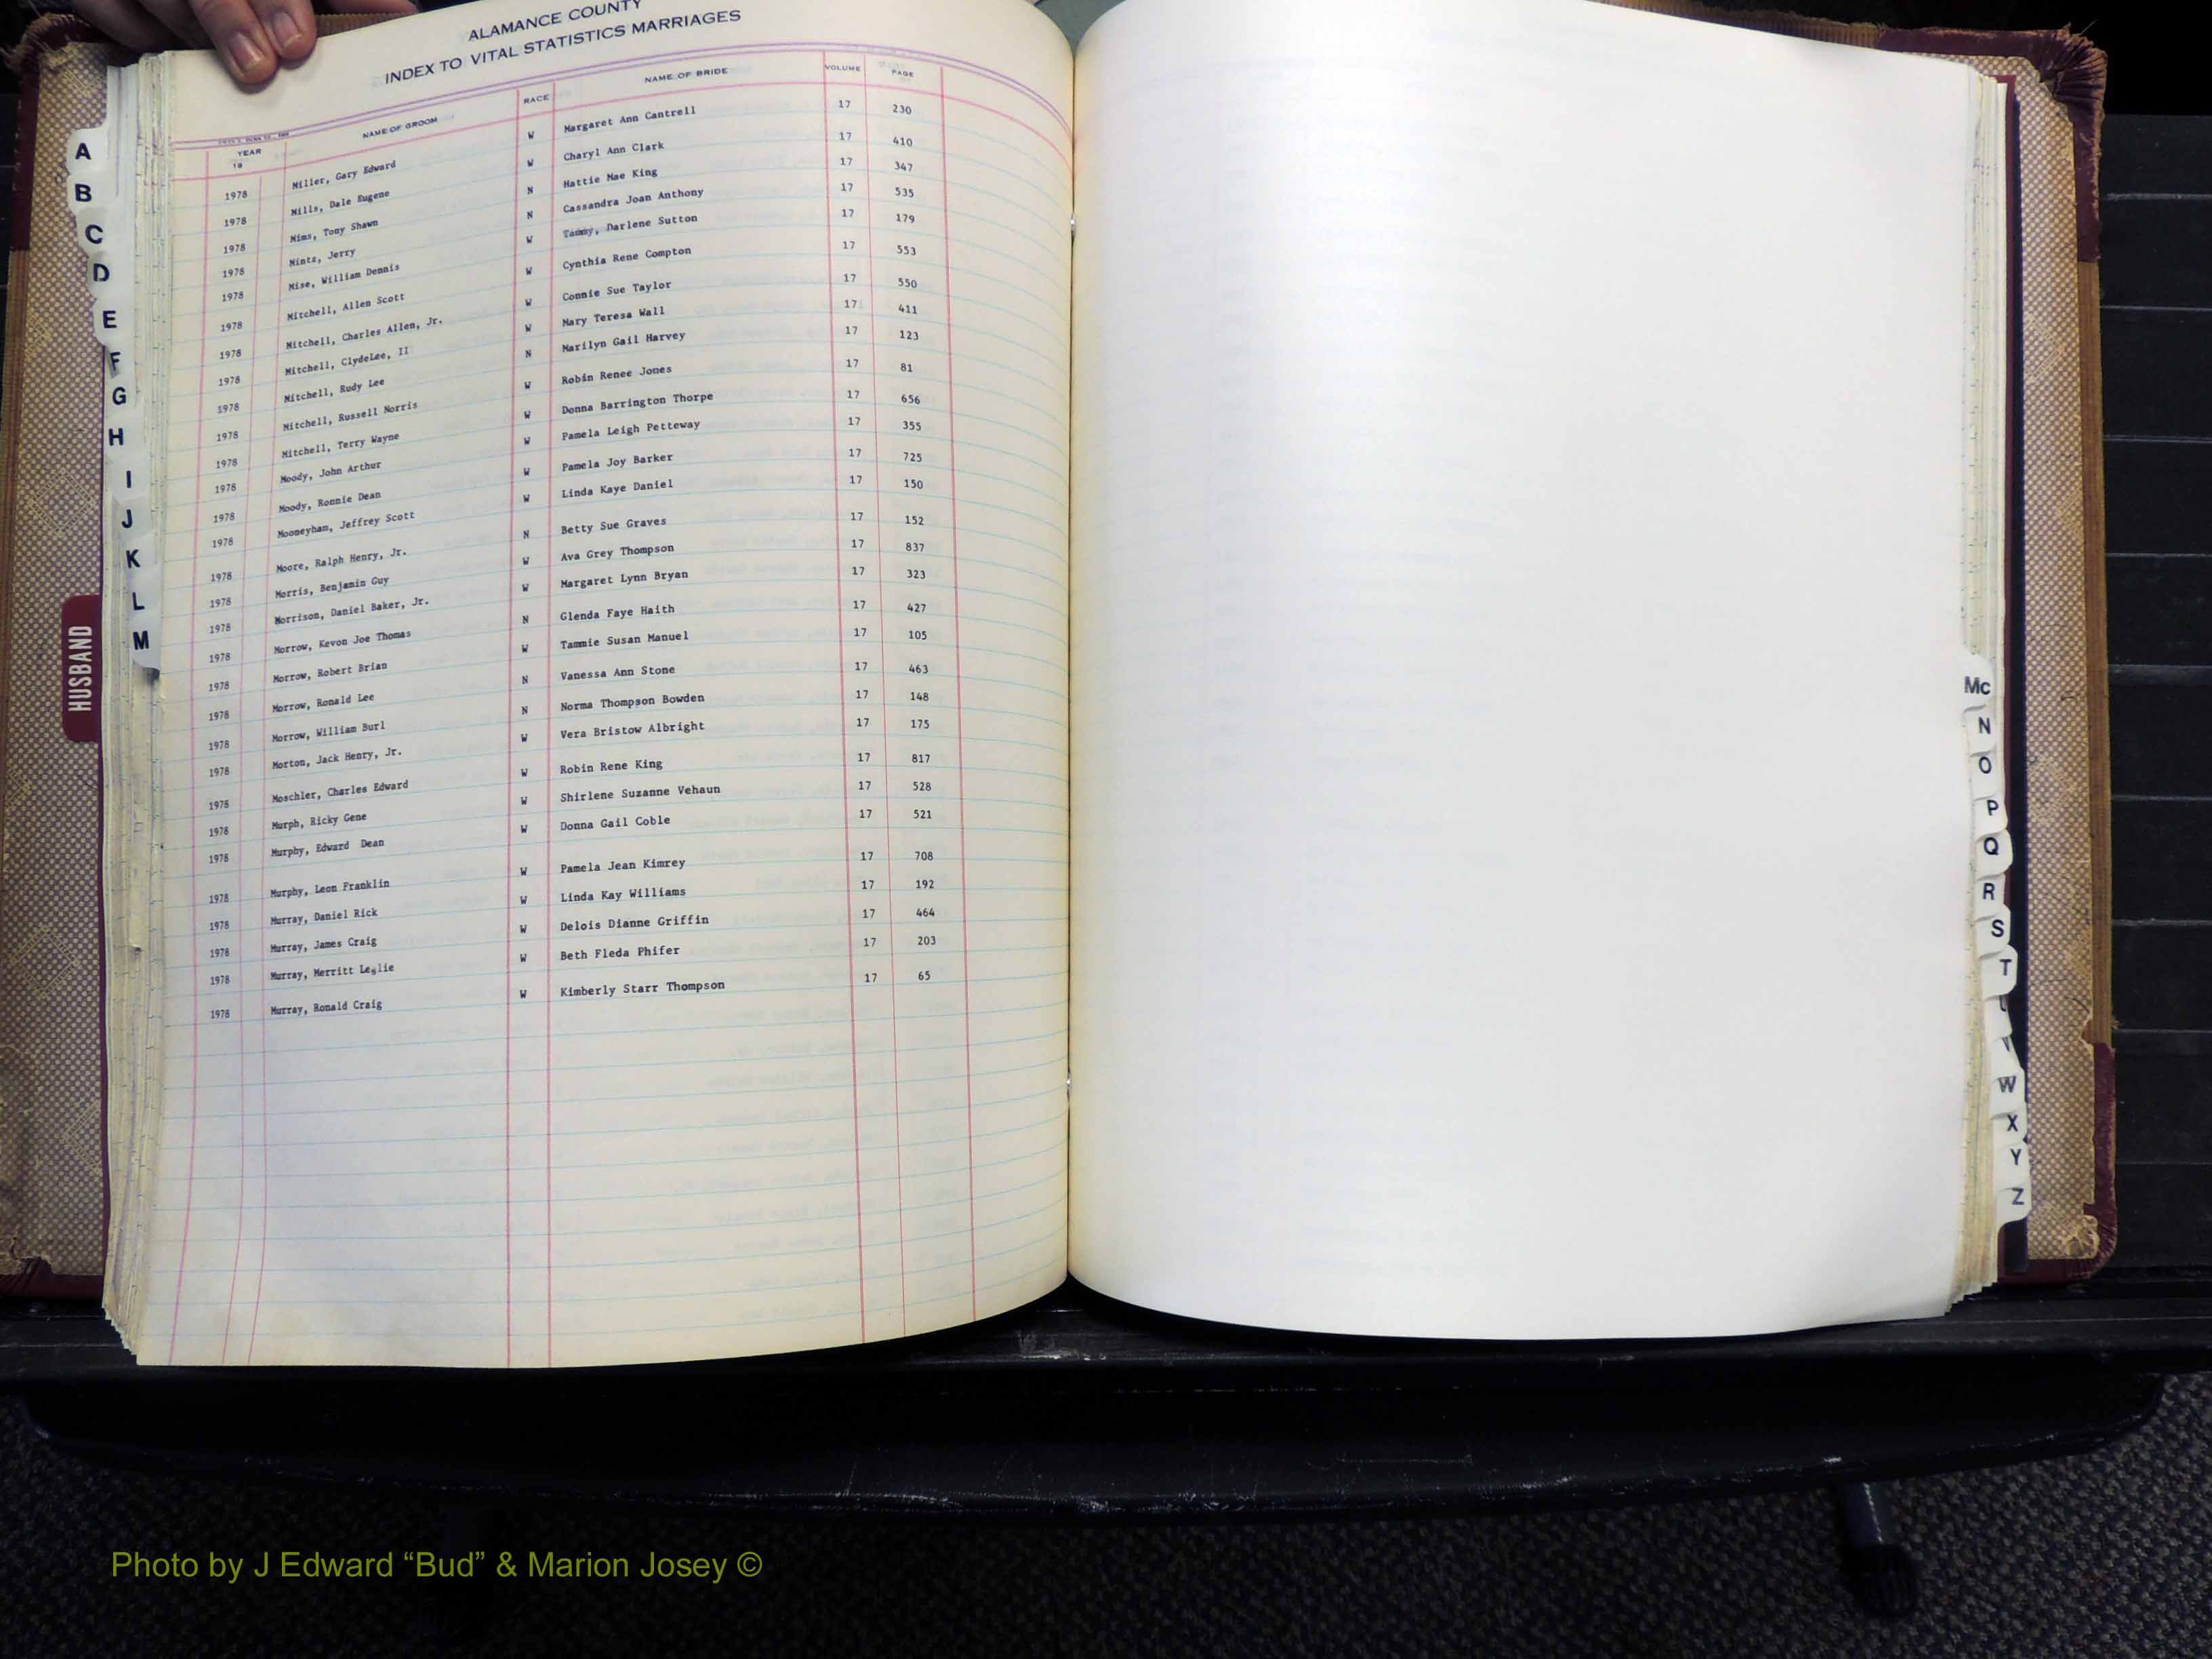 ALAMANCE COUNTY
INDEX TO VITAL STATISTICS MARRIAGES
YEAR 19 NAME OF GROOM RACE NAME OF BRIDE VOLUME PAGE
1978 Miller, Gary Edward W Margaret Ann Cantrell 17 230
1978 Mills, Dale Eugene W Charyl Ann Clark 17 410
1978 Mims, Tony Shawn N Hattie Mae King 17 347
1978 Mintz, Jerry N Cassandra Joan Anthony 17 535
1978 Mise, William Dennis W Tammy, Darlene Sutton 17 179
1978 Mitchell, Allen Scott W Cynthia Rene Compton 17 553
1978 Mitchell, Charles Allen, Jr. W Connie Sue Taylor 17 550
1978 Mitchell, ClydeLee, II W Mary Teresa Wall 17 411
1978 Mitchell, Rudy Lee N Marilyn Gail Harvey 17 123
1978 Mitchell, Russell Norris W Robin Renee Jones 17 81
1978 Mitchell, Terry Wayne W Donna Barrington Thorpe 17 656
1978 Moody, John Arthur W Pamela Leigh Petteway 17 355
1978 Moody, Ronnie Dean W Pamela Joy Barker 17 725
1978 Mooneyham, Jeffrey Scott W Linda Kaye Daniel 17 150
1978 Moore, Ralph Henry, Jr. N Betty Sue Graves 17 152
1978 Morris, Benjamin Guy W Ava Grey Thompson 17 837
1978 Morrison, Daniel Baker, Jr. W Margaret Lynn Bryan 17 323
1978 Morrow, Kevon Joe Thomas N Glenda Faye Haith 17 427
1978 Morrow, Robert Brian W Tammie Susan Manuel 17 105
1978 Morrow, Ronald Lee N Vanessa Ann Stone 17 463
1978 Morrow, William Burl N Norma Thompson Bowden 17 148
1978 Morton, Jack Henry, Jr. W Vera Bristow Albright 17 175
1978 Moschler, Charles Edward W Robin Rene King 17 817
1978 Murph, Ricky Gene W Shirlene Suzanne Vehaun 17 528
1978 Murphy, Edward Dean W Donna Gail Coble 17 521
1978 Murphy, Leon Franklin W Pamela Jean Kimrey 17 708
1978 Murray, Daniel Rick W Linda Kay Williams 17 192
1978 Murray, James Craig W Delois Dianne Griffin 17 464
1978 Murray, Merritt Leslie W Beth Fleda Phifer 17 203
1978 Murray, Ronald Craig W Kimberly Starr Thompson 17 65
A
B
C
D
E
F
G
H
I
J
K
L
M
HUSBAND
Mc
N
O
P
Q
R
S
T
V
W
X
Y
Z
Photo by J Edward “Bud” & Marion Josey ©